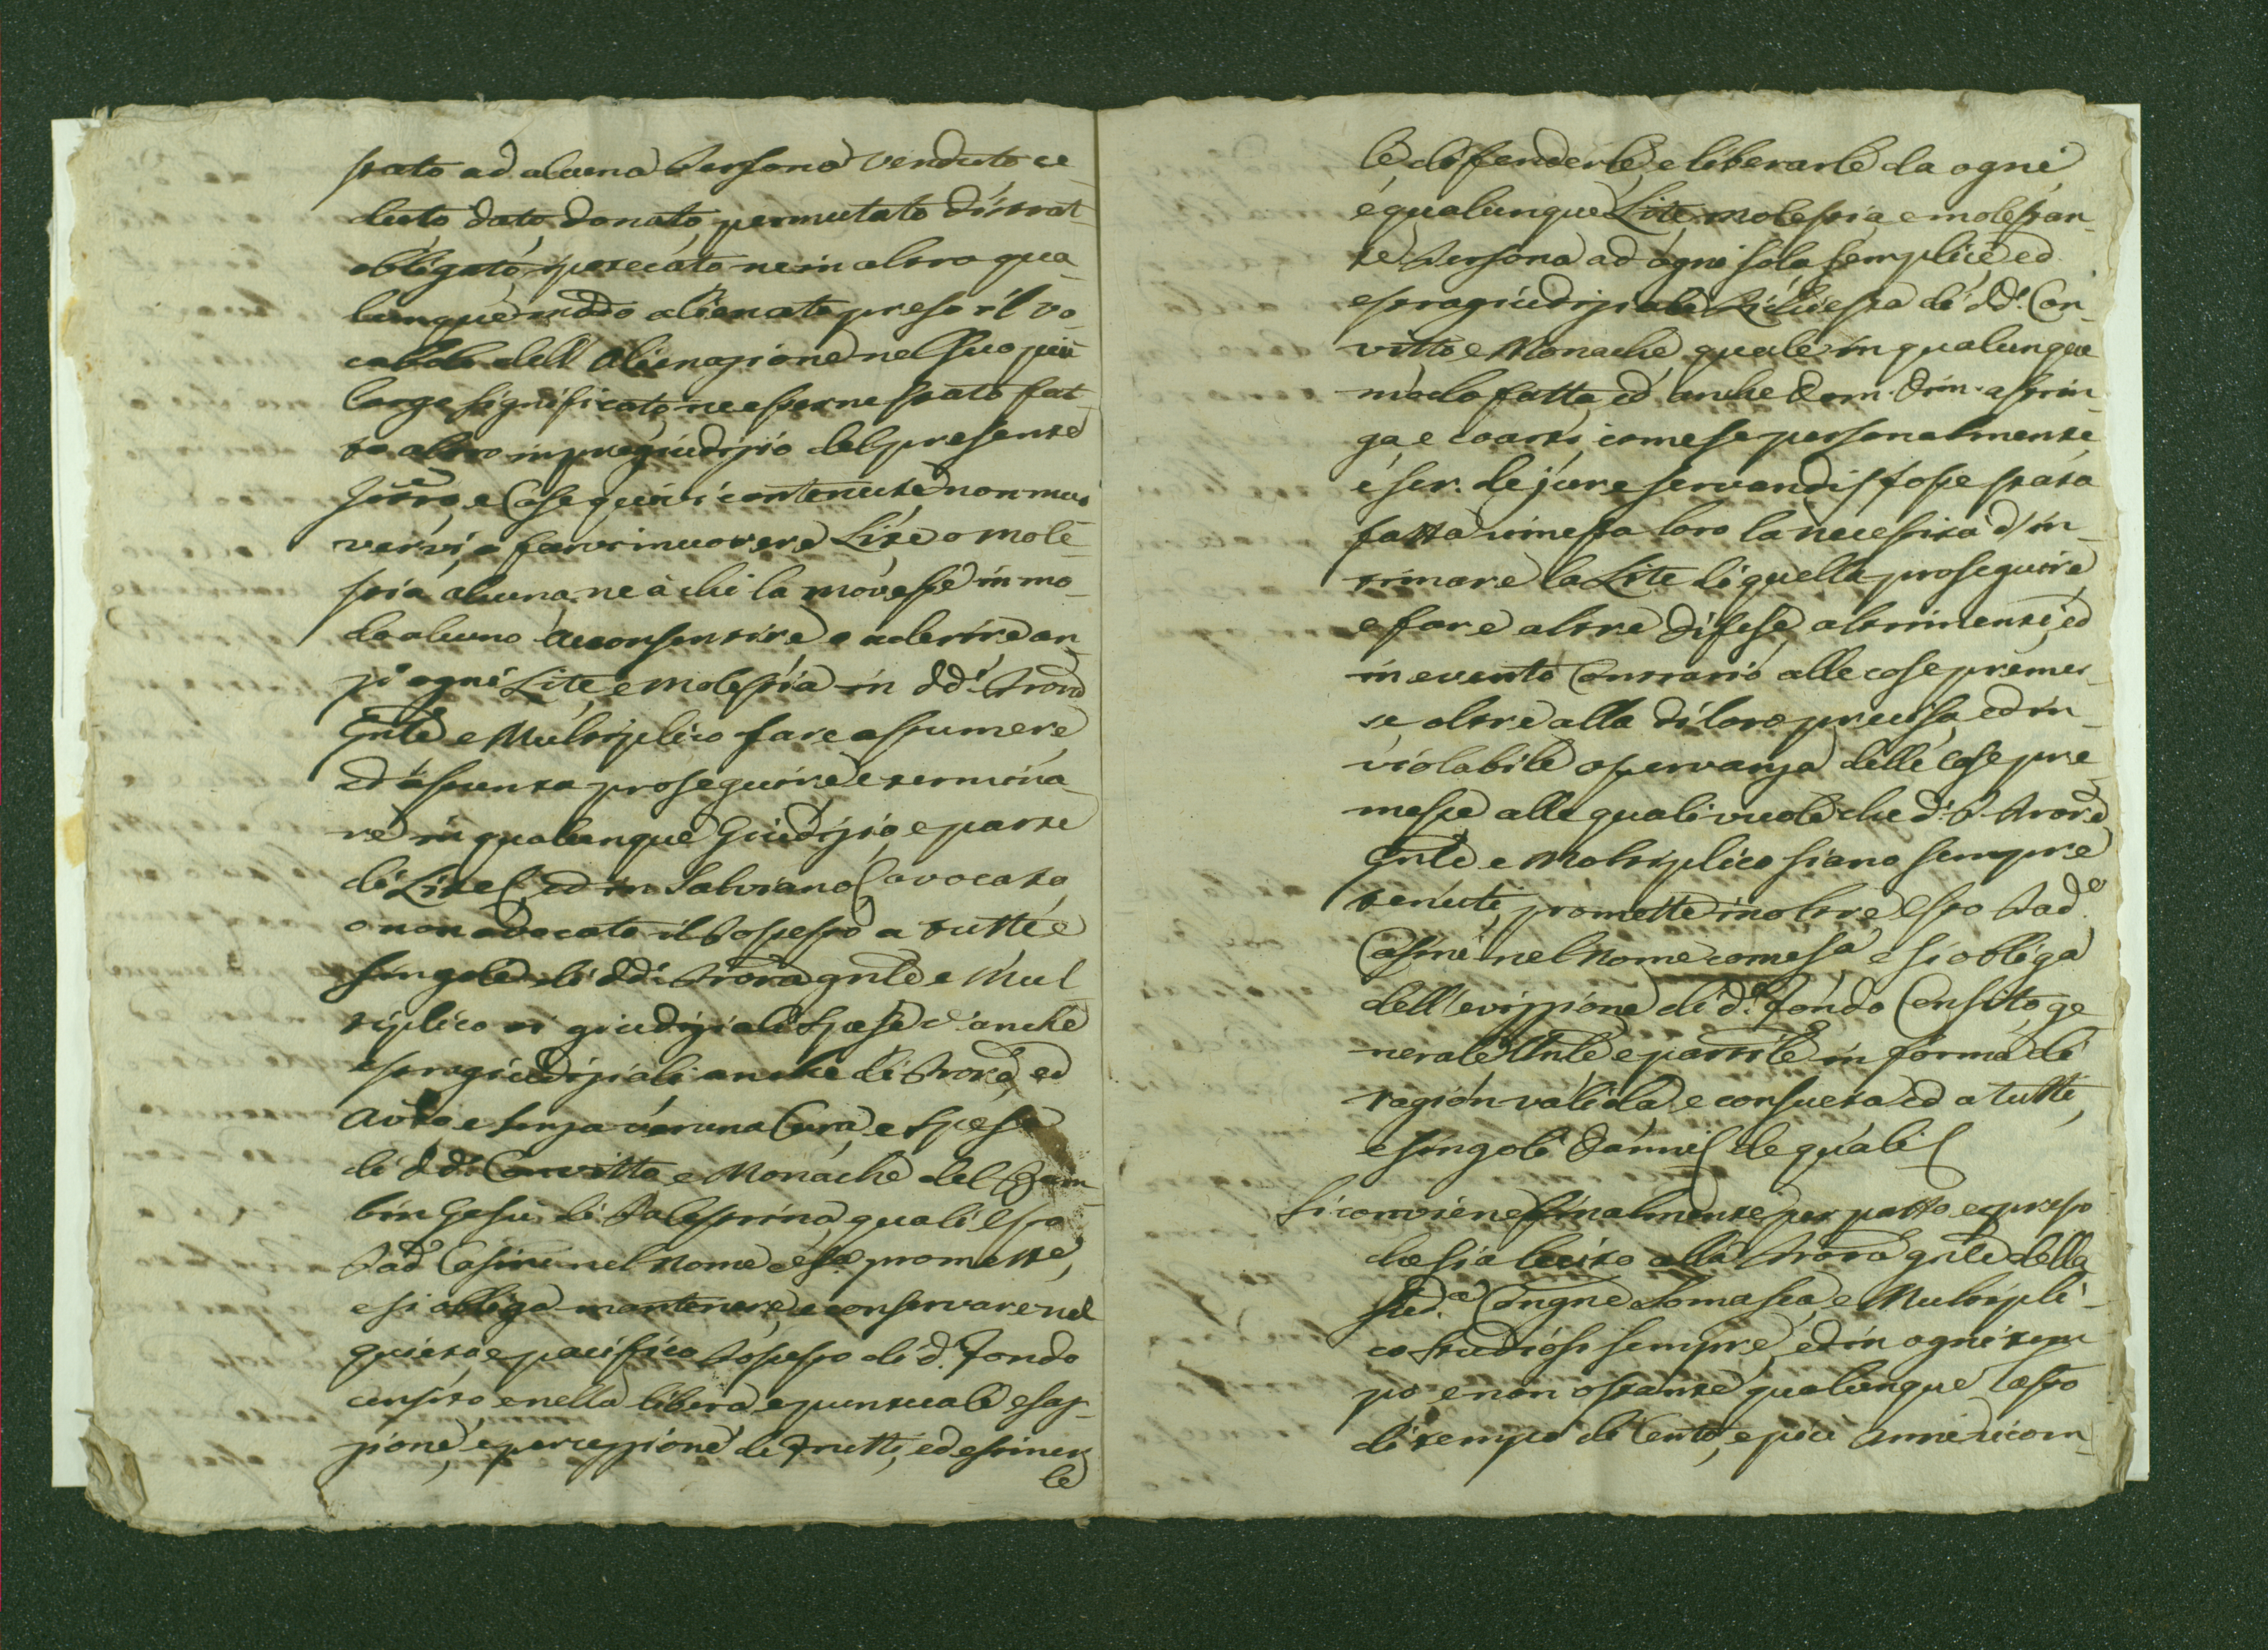 stato ad alcuna Persona venduto ce-
duto dato, donato, permutato distrat-
obligato, ipotecato ne in altro qua-
lunque modo alienato preso il vo-
cabolo dell'Alienazione nel suo più
largo significato, ne esserne stato fat-
to altro in pregiudizio del presente
Istro, e Cose quivi contenute non muo
vervi, o farvi muovere Lite o mole-
stia alcuna, ne à chi la movesse in mo-
do alcuno acconsentire o aderire an-
zi ogni Lite, e molestia in dd.i Procra
Gnle e Multiplico fare assumere
ed assunta proseguire e termina-
re in qualunque Giudizio, e parte
di Lite, ed in Salviano avocato
o non avocato il Possesso a tutte e
singole di dd.i Procra gnle e Mul-
tiplico vi giudiziali spese ed anche
estragiudiziali anche di Procra, ed
Avvo e senza veruna Cura, e Spesa
di dd.i Convitto e Monache del Bam-
bin Gesù di Palestrina, quali esso
Pad.e Casini nel nome come sa promette,
e si obliga mantenere, e conservare nel
quieto e pacifico Possesso di d.o Fondo
censito e nella libera, e puntuale esaz-
zione, e percezzione de Frutti, ed esimer
le
le, difenderle, e liberarle da ogni
e qualunque Lite, molestia, e molestan-
te Persona ad ogni sola, semplice ed
estragiudiziale Richiesta di dd.i Con-
vitto e Monache, quale in qualunque
modo fatta, ed anche Dom. Dim. astrin-
ga, e coarti, come se personalmente
e ser. de jure servandis fosse stata
fatta rimessa loro la necessità d'in-
timare la Lite di quella proseguire
e fare altre difese, altrimenti, ed
in evento Contrario alle cose premes-
se, oltre alla di loro precisa, ed in-
violabile osservanza delle Cose pre-
messe alle quali vuole che d.a Procra
Gnle e Moltiplico siano sempre
tenuti, promette inoltre esso Pad.e
Casini nel nome come sa, e si obliga
dell'evizzione di d.o Fondo Censito, ge-
nerale Unle e partile in forma di
ragion valida, e consueta ed a tutti,
e singoli Danni de quali
Si conviene finalmente per patto espresso
che sia lecito alla Procra gnle della
Sud.a Congne Somasca, e Multipli-
co studiosi sempre, ed in ogni tem-
po, e non ostante qualunque lasso
di tempo di Cento, e più Anni ricom-